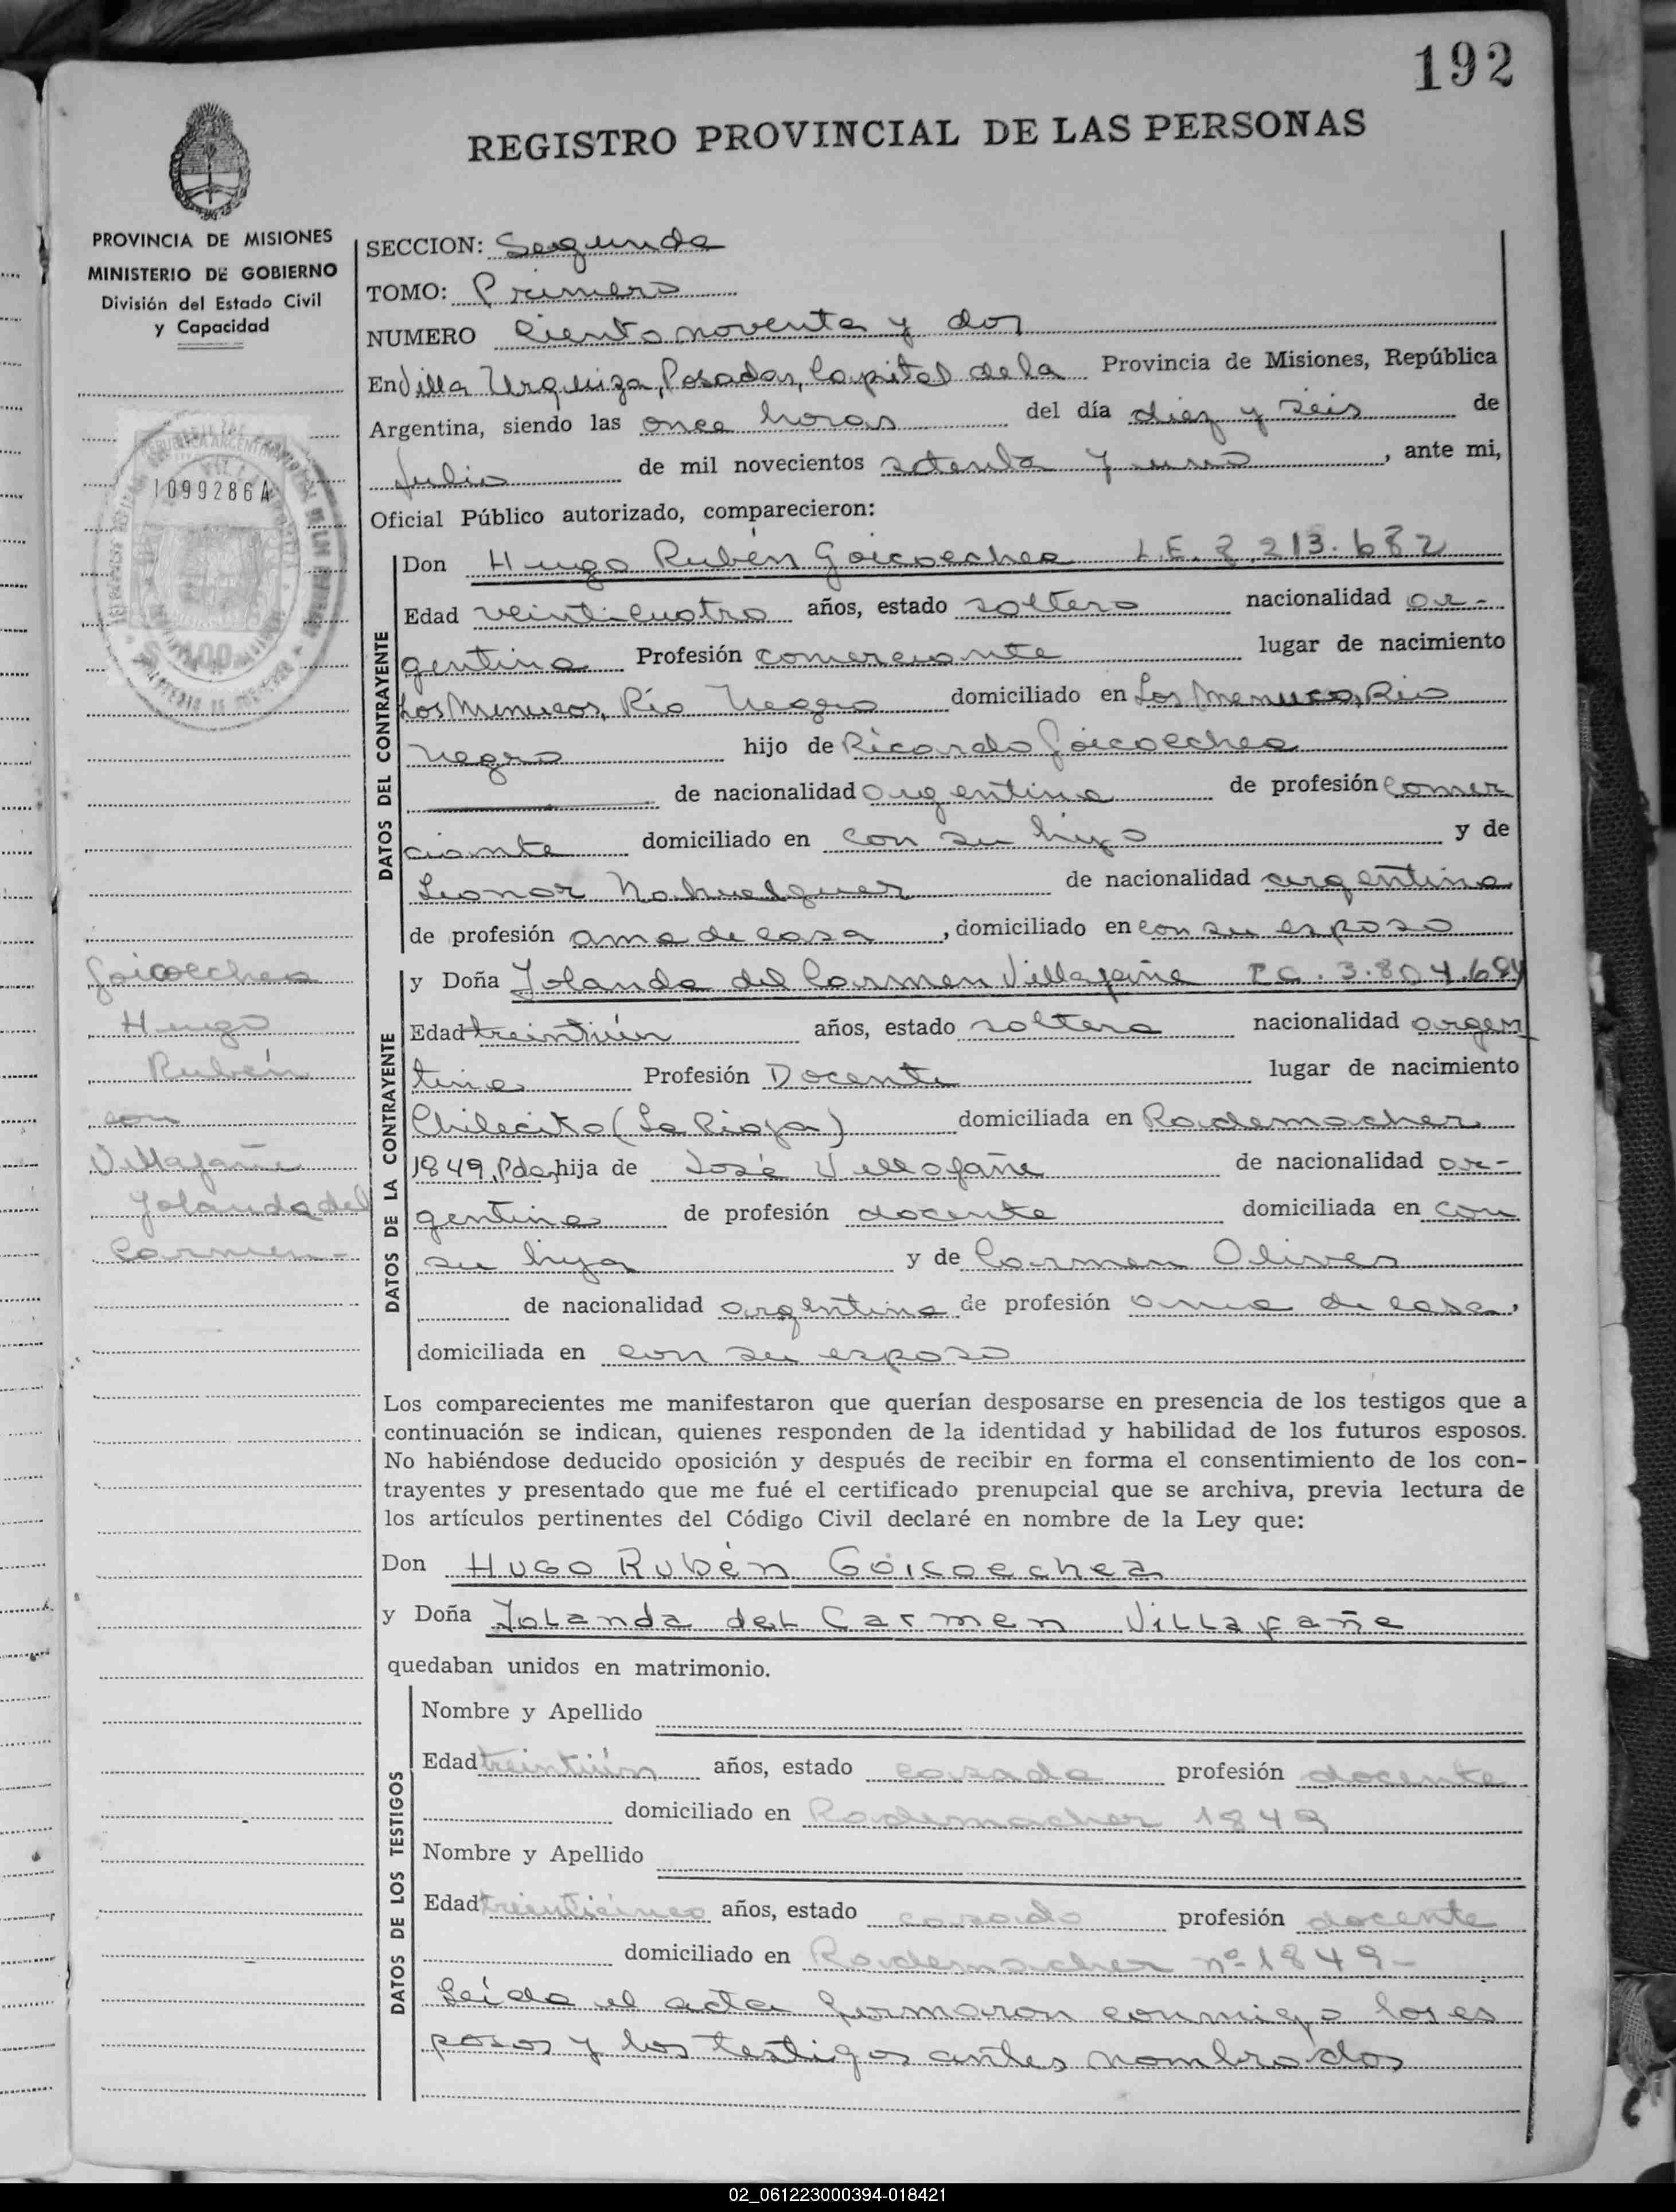 192
REGISTRO PROVINCIAL DE LAS PERSONAS
PROVINCIA DE MISIONES
MINISTERIO DE GOBIERNO
División del Estado Civil
y Capacidad
1099286A
Goicoechea
Hugo
Rubén
con
Villafañe
Yolanda del
Carmen-
SECCION: Segunda
TOMO: Primero
NUMERO Ciento noventa y dos
En Villa Urquiza, Posadas, Capital de la Provincia de Misiones, República
Argentina, siendo las once horas del día diez y seis de
Julio de mil novecientos setenta y uno, ante mi,
Oficial Público autorizado, comparecieron:
DATOS DEL CONTRAYENTE
Don Hugo Rubén Goicoechea L.E. 8.213.682
Edad veinticuatro años, estado soltero nacionalidad ar-
gentina Profesión comerciante lugar de nacimiento
Los Menucos, Río Negro domiciliado en Los Menucos, Rio
Negro hijo de Ricardo Goicoechea
de nacionalidad argentina de profesión comer
ciante domiciliado en con su hijo y de
Leonor de nacionalidad argentina
de profesión ama de casa, domiciliado en con su esposo
DATOS DE LA CONTRAYENTE
y Doña Yolanda del Carmen Villafañe 3.804.
Edad treintiún años, estado soltera nacionalidad argen
tina Profesión Docente lugar de nacimiento
Chilecito (La Rioja) domiciliada en Rademacher
1849, Pdas, hija de José Villafañe de nacionalidad ar-
gentina de profesión docente domiciliada en con
su hija y de Carmen Olives
de nacionalidad argentina de profesión ama de casa,
domiciliada en con su esposo
Los comparecientes me manifestaron que querían desposarse en presencia de los testigos que a
continuación se indican, quienes responden de la identidad y habilidad de los futuros esposos.
No habiéndose deducido oposición y después de recibir en forma el consentimiento de los con-
trayentes y presentado que me fué el certificado prenupcial que se archiva, previa lectura de
los artículos pertinentes del Código Civil declaré en nombre de la Ley que:
Don Hugo Rubén Goicoechea
y Doña Yolanda del Carmen Villafañe
quedaban unidos en matrimonio.
DATOS DE LOS TESTIGOS
Nombre y Apellido
Edad treintiún años, estado casada profesión docente
domiciliado en Rademacher 1849
Nombre y Apellido
Edad treinticinco años, estado casado profesión docente
domiciliado en Rademacher nº 1849-
Leída el acta firmaron conmigo los es
posos y los testigos antes nombrados
02_061223000394-018421